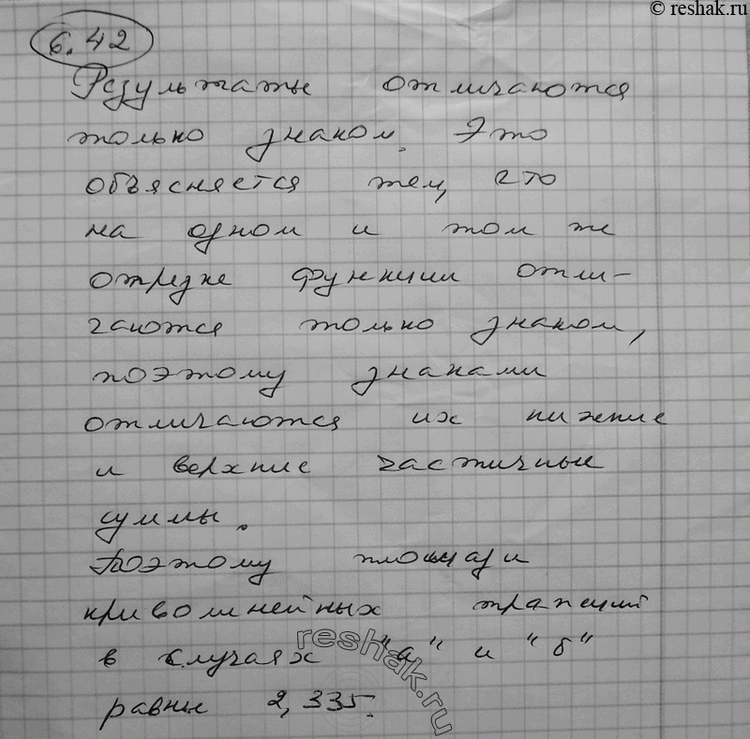 © reshak.ru
6.42
Результаты отличаются
только знаком. Это
объясняется тем, что
на одном и том же
отрезке функции отли-
чаются только знаком,
поэтому знаками
отличаются их нижние
и верхние частичные
суммы.
Поэтому площади
криволинейных трапеций
в случаях "а" и "б"
равны 2,335.
reshak.ru